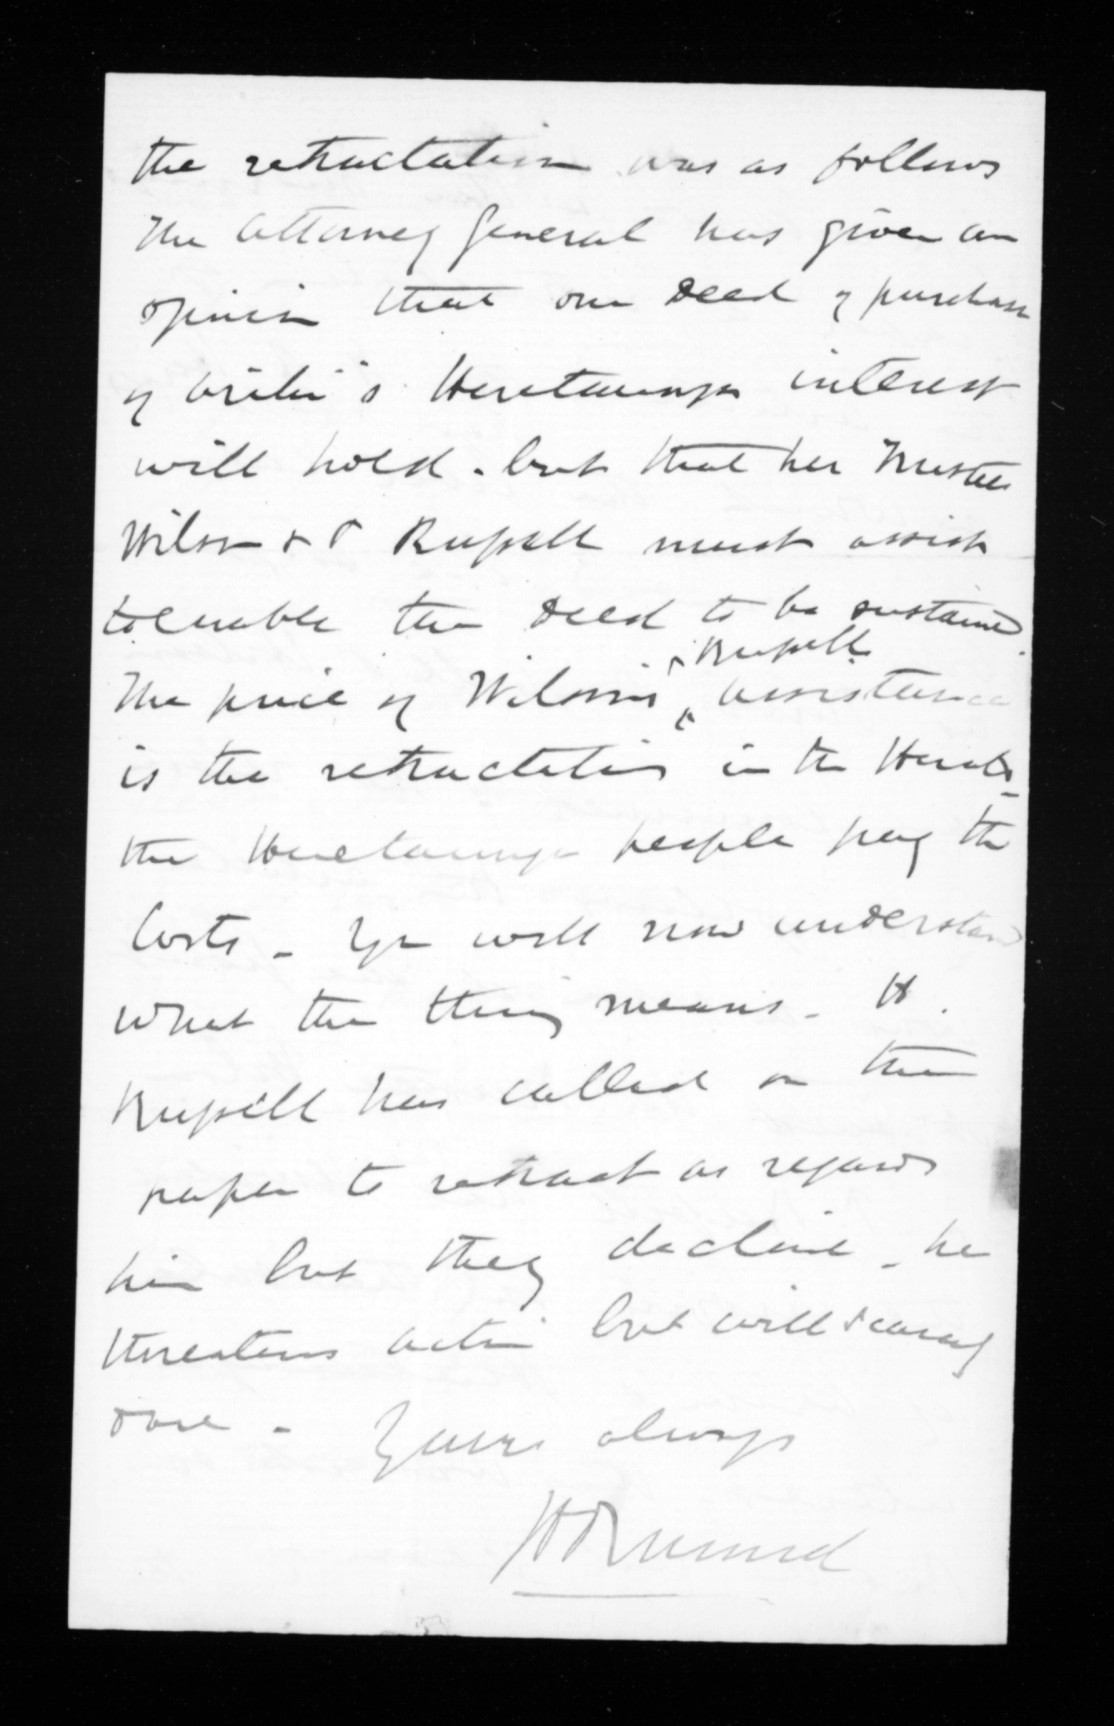 the retractation was as follows
The Attorney General has given an
opinion that our Deed of purchase
of Arihi's Heretaunga interest
will hold - but that her Trustees
Wilson & P Russell must assist
to enable the Deed to be sustained.
The price of Wilson's & Russell's assistance
is the retractation in the Herald -
the Heretaunga people pay the
Costs - You will now understand
what the thing means - H.
Russell has called on the
paper to retract as regards
him but they decline - he
threatens action but will scarcely
dare - Yours always